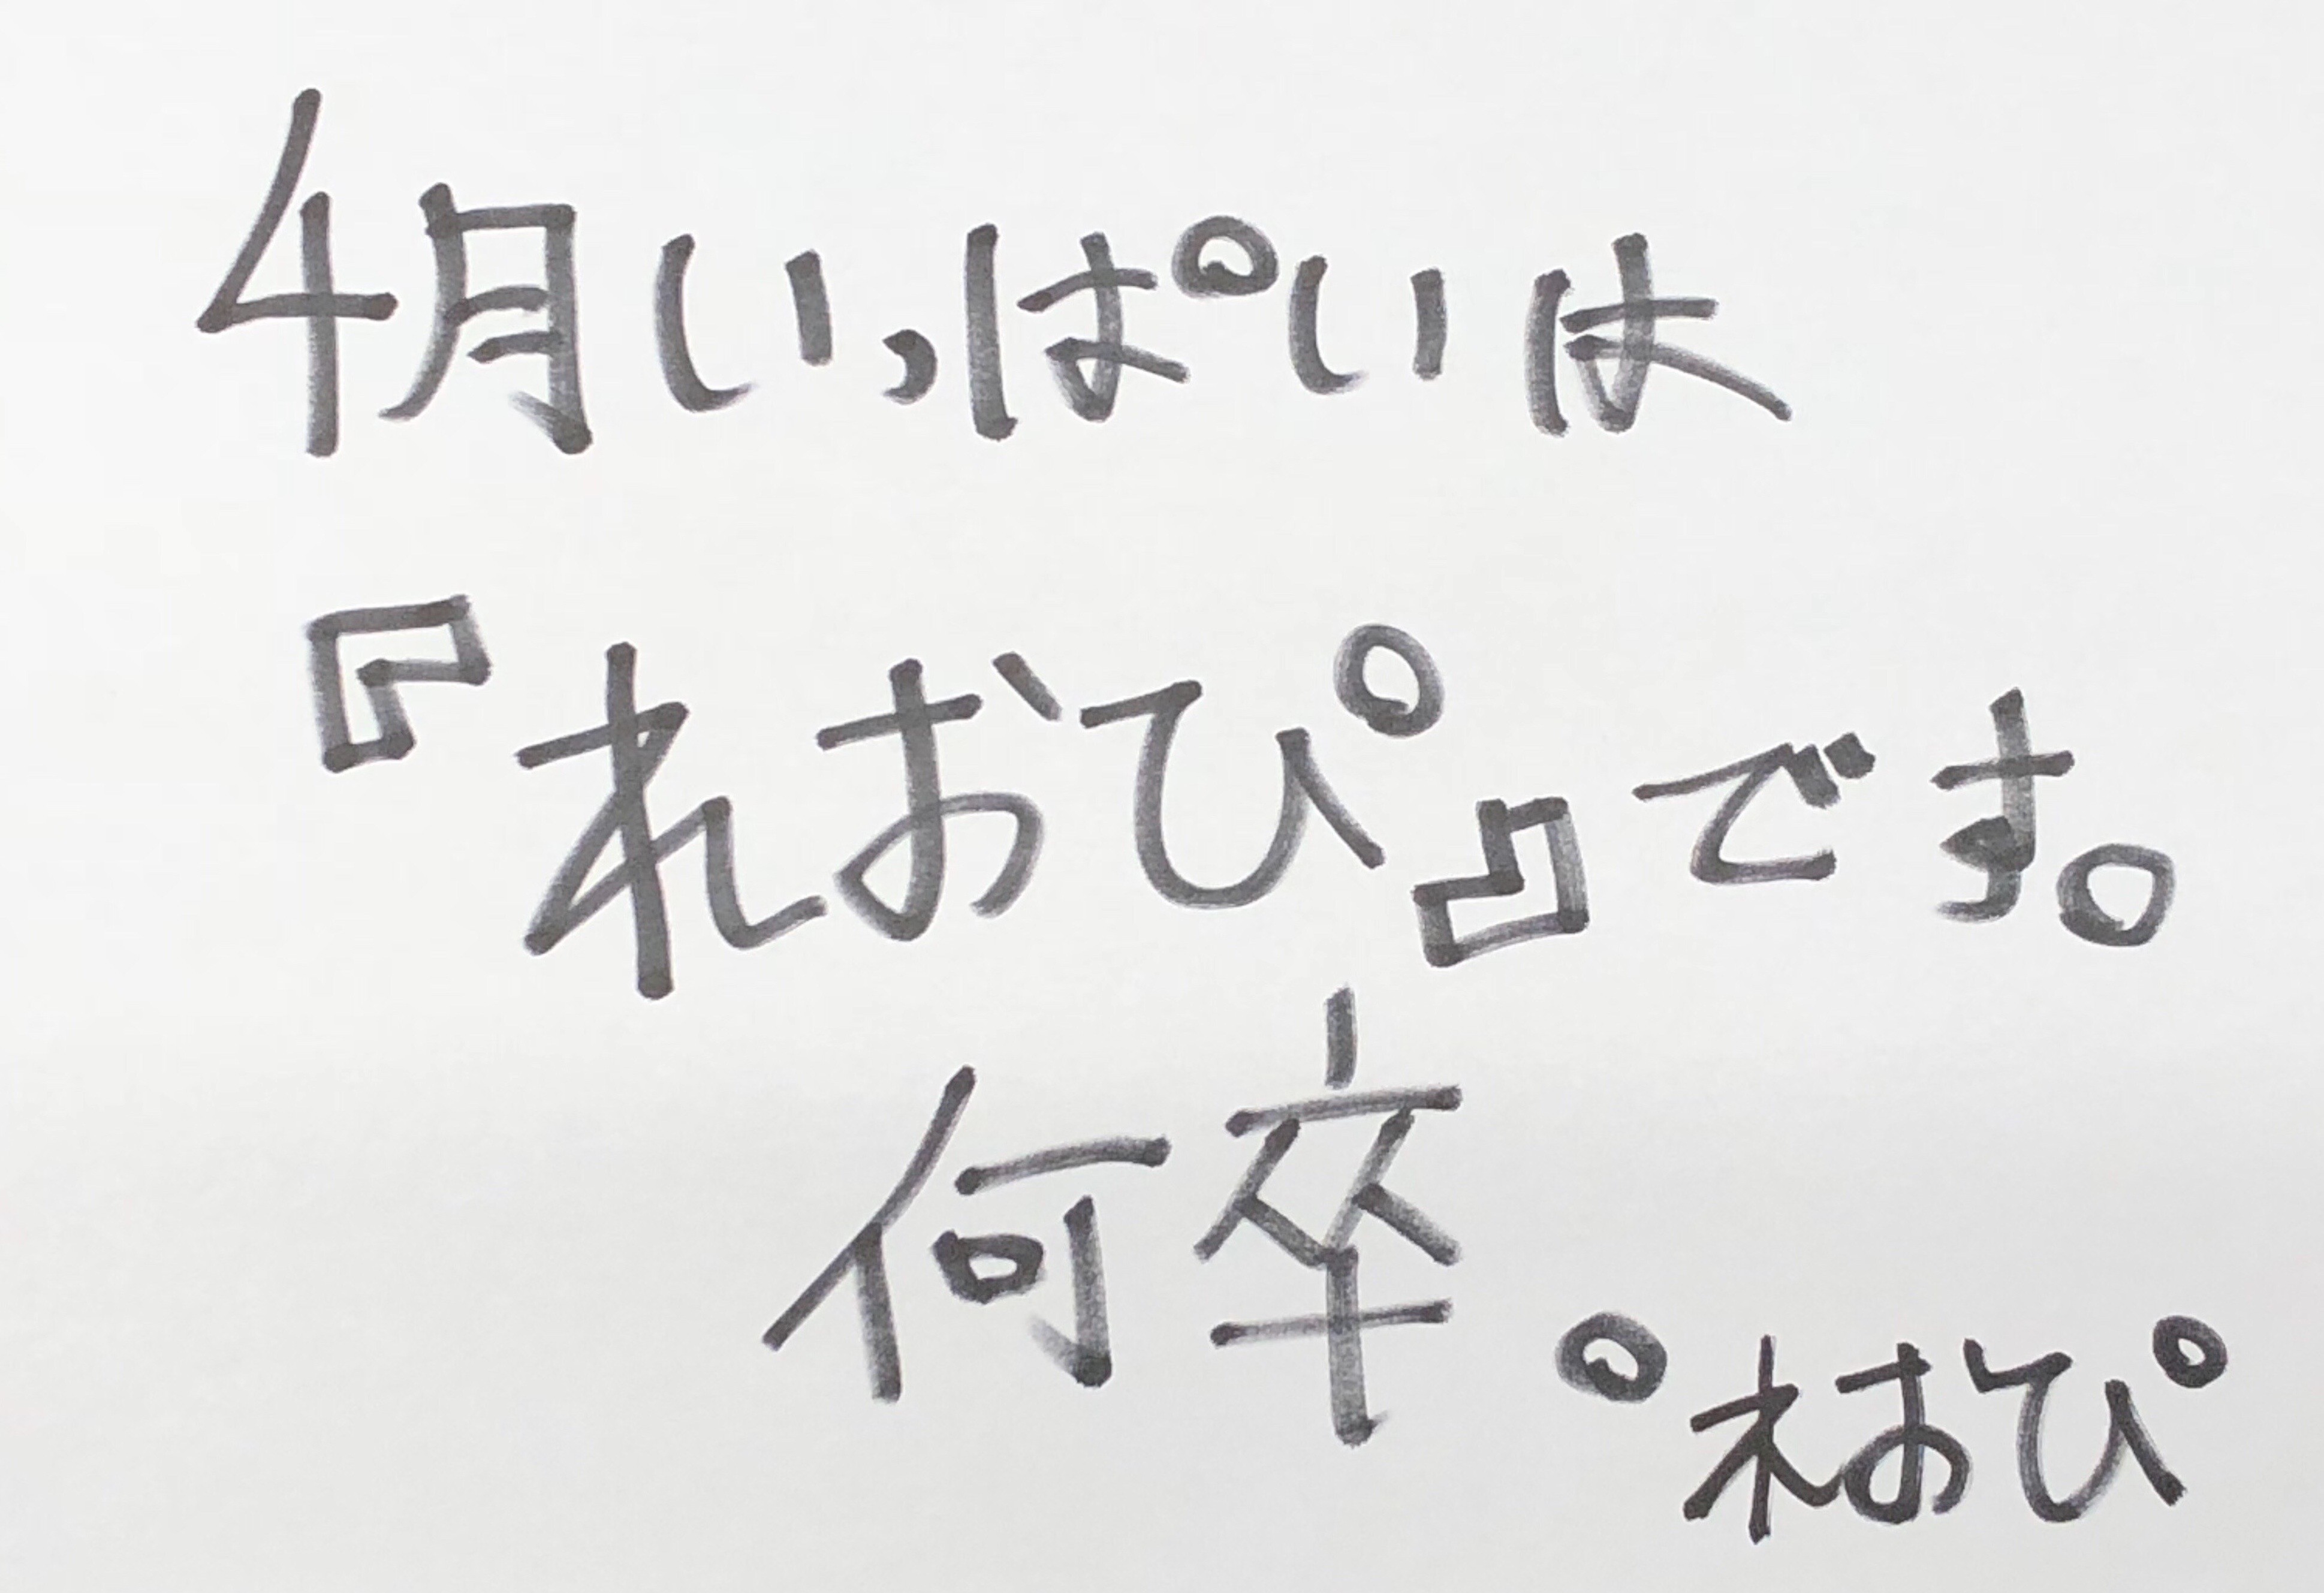 4月いっぱいは
『れおぴ』です。
何卒。
れおぴ